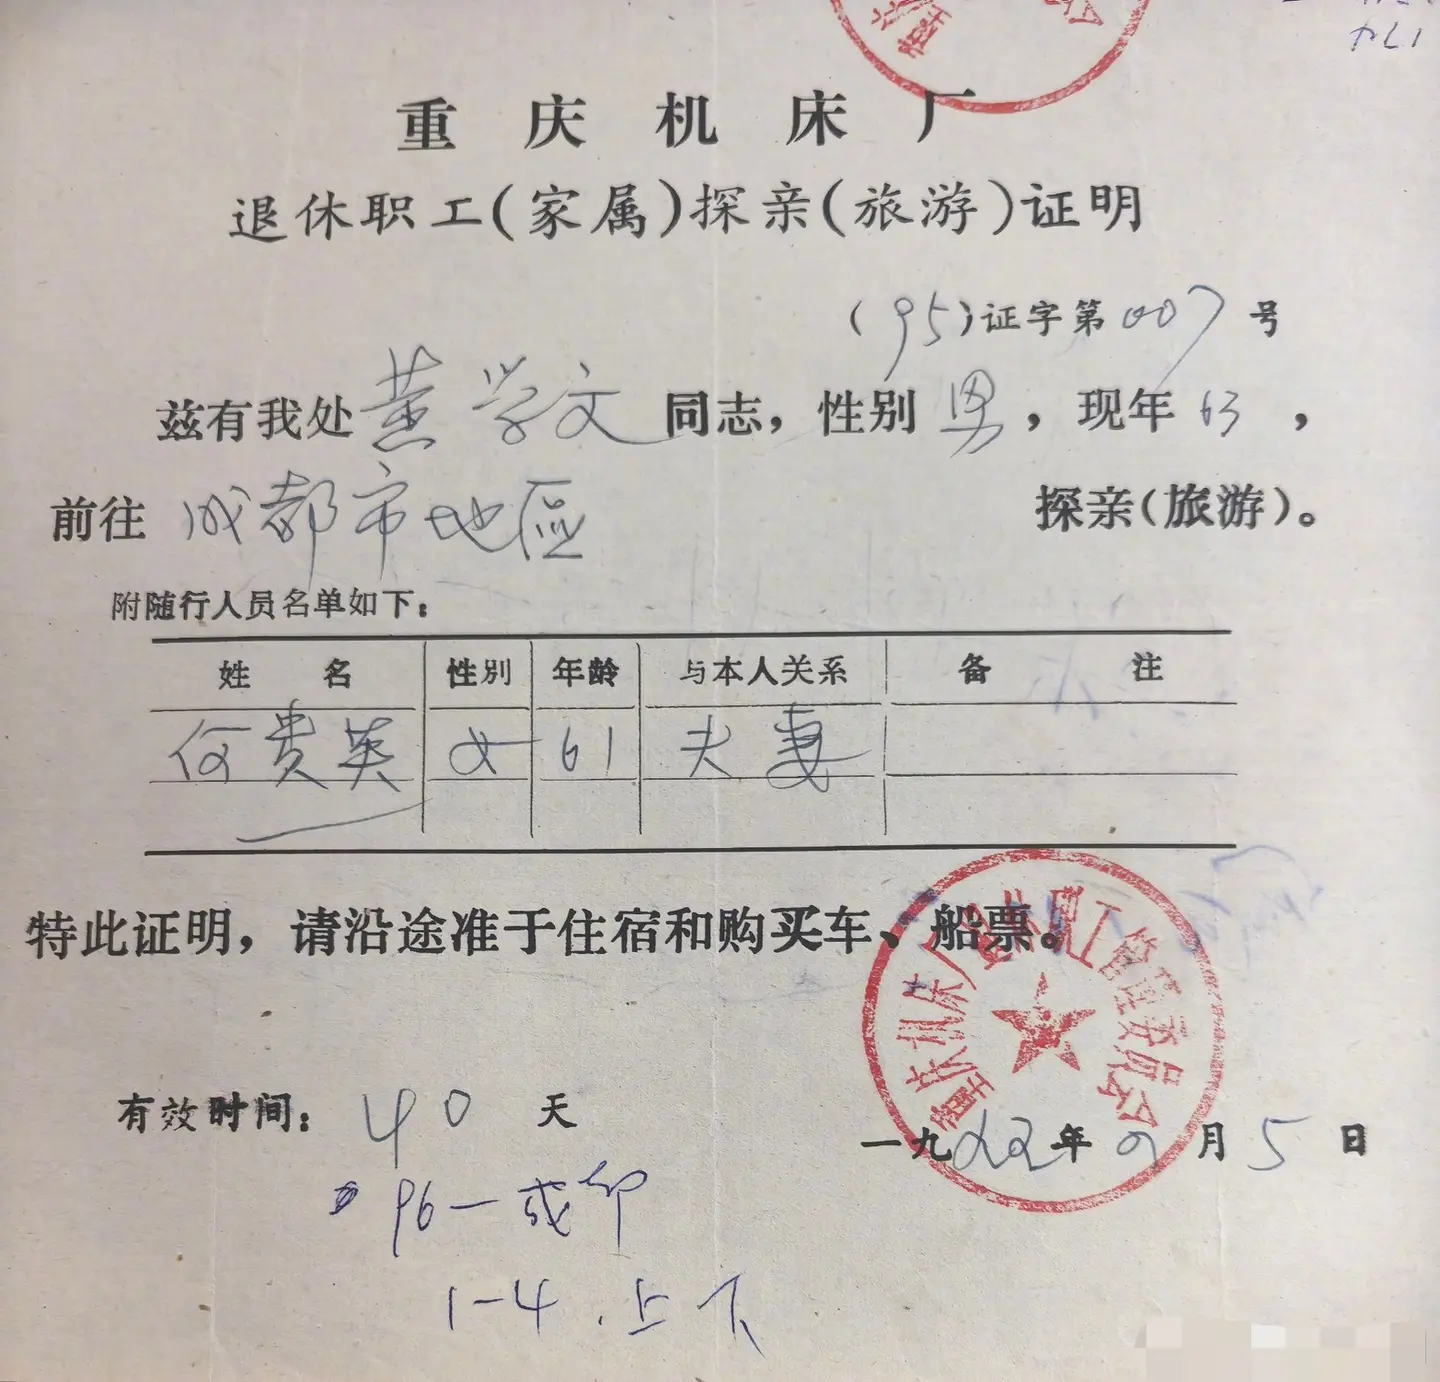 重庆机床厂
退休职工(家属)探亲(旅游)证明
(95)证字第007号
兹有我处黄学文同志，性别男，现年63，
前往成都市地区 探亲(旅游)。
附随行人员名单如下：
姓名 性别 年龄 与本人关系 备注
何贵英 女 61 夫妻
特此证明，请沿途准于住宿和购买车、船票。
重庆机床厂退休职工管理委员会
有效时间：40天
一九 年 月5日
96一成都
1-4.上下